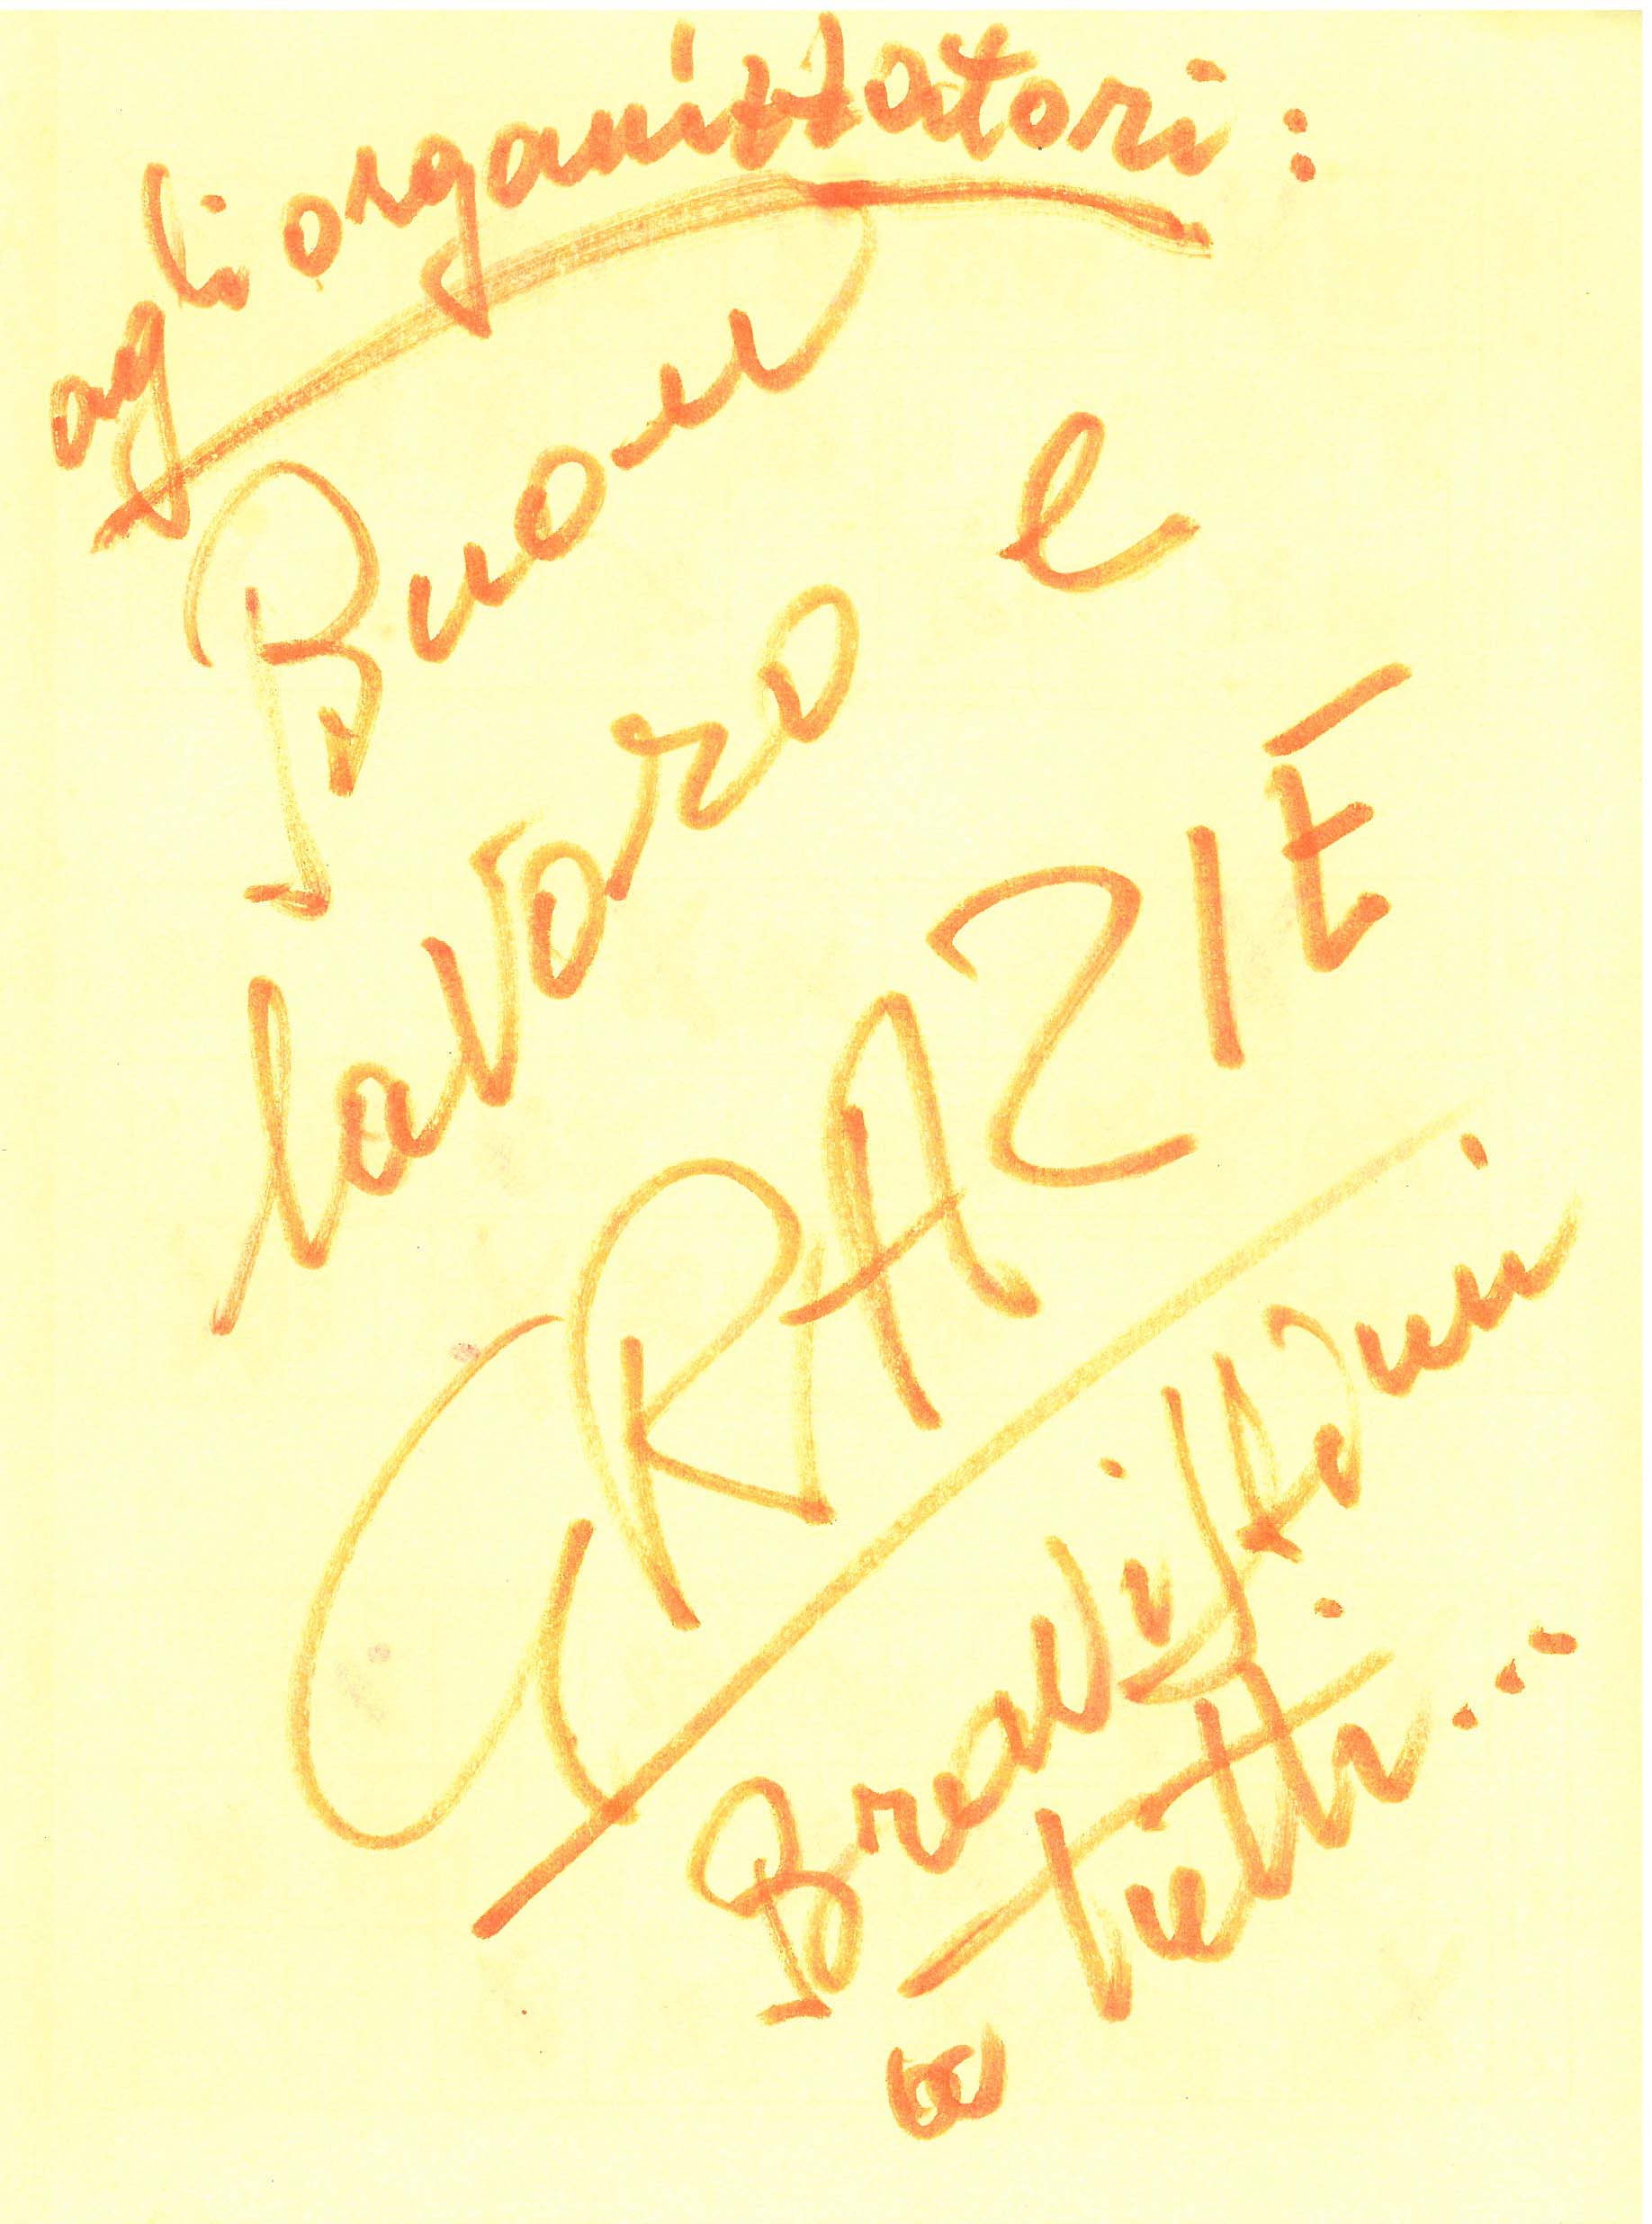 agli organizzatori:
Buon
lavoro e
GRAZIE
a tutti...